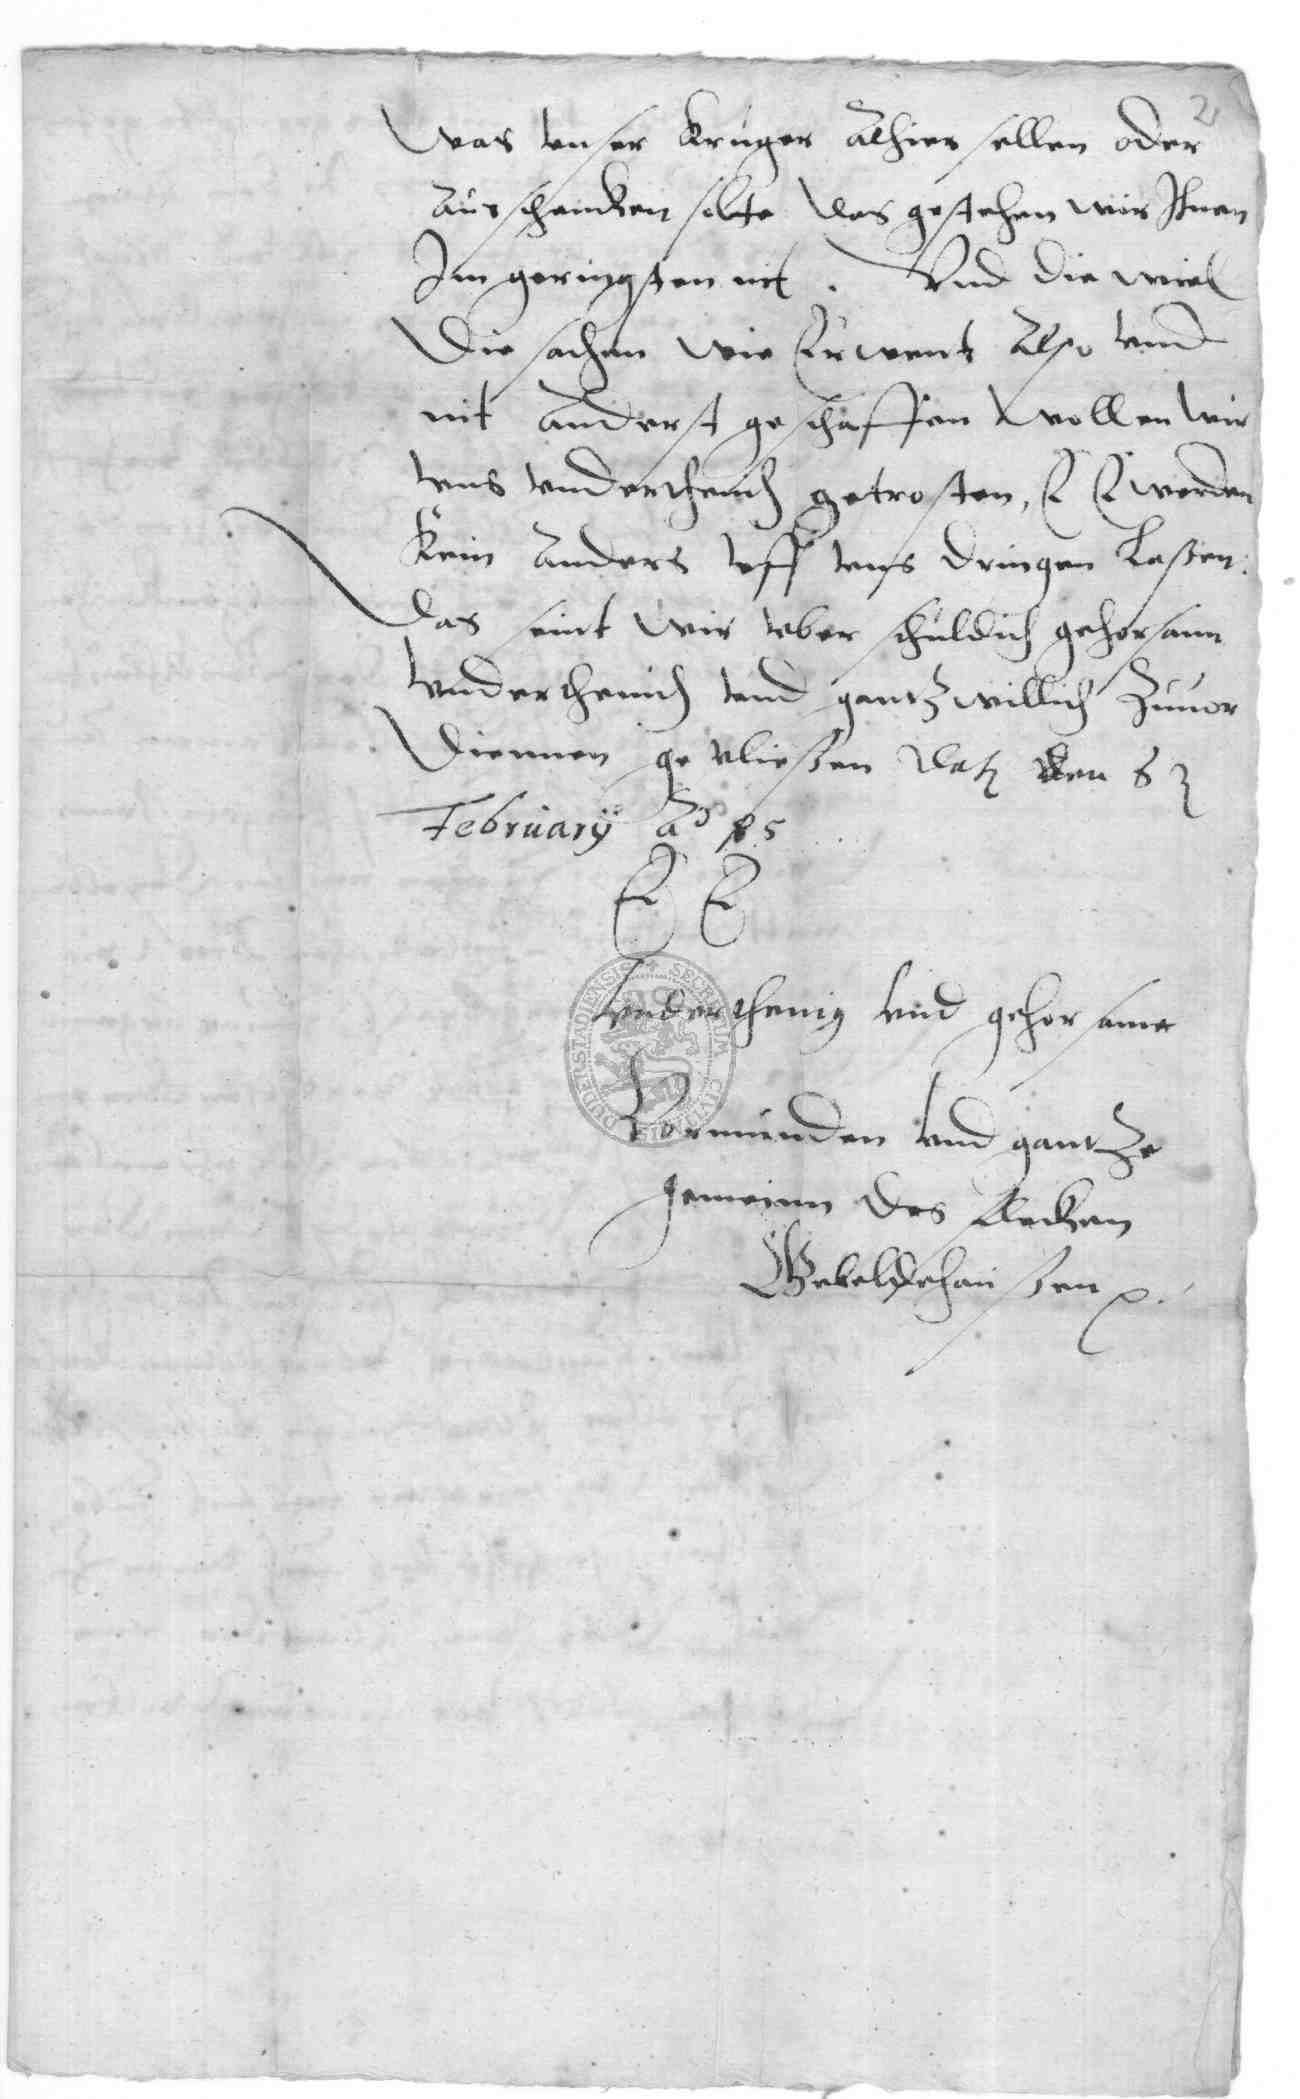 2
was unser Kruger alhier sellen oder
ausschencken solte das gestehen wir Ihnen
Im geringsten nit. Und die wiel
die sachen wie Erwent Also und
nit anderst geschaffen wollen wir
uns underthenich getrosten, E E werden
kein anders uff uns dringen laßen.
das seint wir uber schuldich gehorsam
underthenich und gantz willich zuuor
diennen gevließen Datz den 8
February Ao 85
E E
underthenig und gehorsame
Vormunden und gantze
gemeinn des flecken
Gebeldehaußen
SECRETUM CIVITATIS DUDERSTADIENSIS